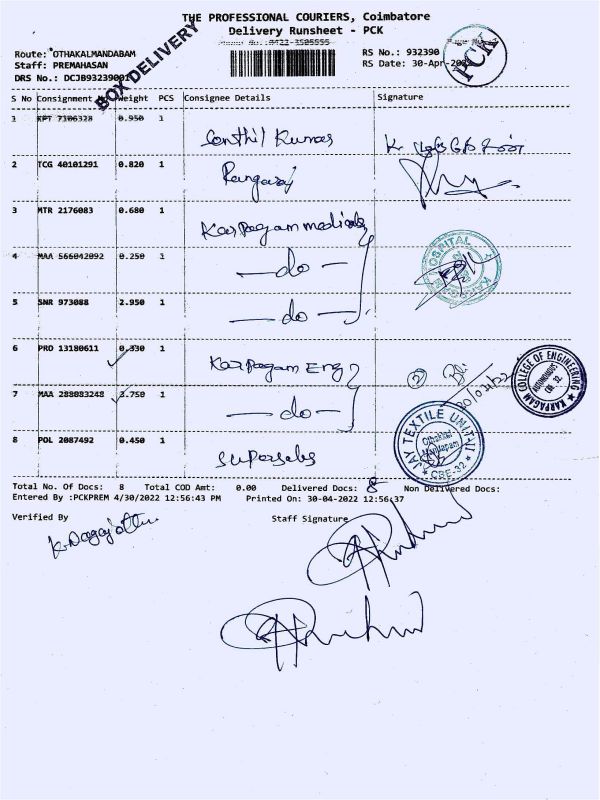 THE PROFESSIONAL COURIERS, Coimbatore
Delivery Runsheet - PCK
BOX DELIVERY
PCK
Route: OTHAKALMANDABAM
Staff: PREMAHASAN
RS No.: 932390
RS Date: 30-Apr-
S No Consignment Weight PCS Consignee Details Signature
1 KPT 7106328 0.950 1 Senthil Kumar
2 TCG 40101291 0.820 1 Rangaraj
3 MTR 2176083 0.680 1 Karpagam medicals
4 MAA 566042092 0.250 1 — do —
HOSPITAL
5 SNR 973088 2.950 1 — do —
6 PRO 13180611 0.330 1 Karpagam Eng
KARPAGAM COLLEGE OF ENGINEERING
AUTONOMOUS
CBE-32.
7 MAA 288083248 3.750 1 — do —
JAY TEXTILE UNIT-II
Othakkal
Mandapam
CBE-32
8 POL 2087492 0.450 1
Total No. Of Docs: 8 Total COD Amt: 0.00 Delivered Docs: 8 Non Delivered Docs:
Entered By :PCKPREM 4/30/2022 12:56:43 PM Printed On: 30-04-2022 12:56:37
Verified By Staff Signature